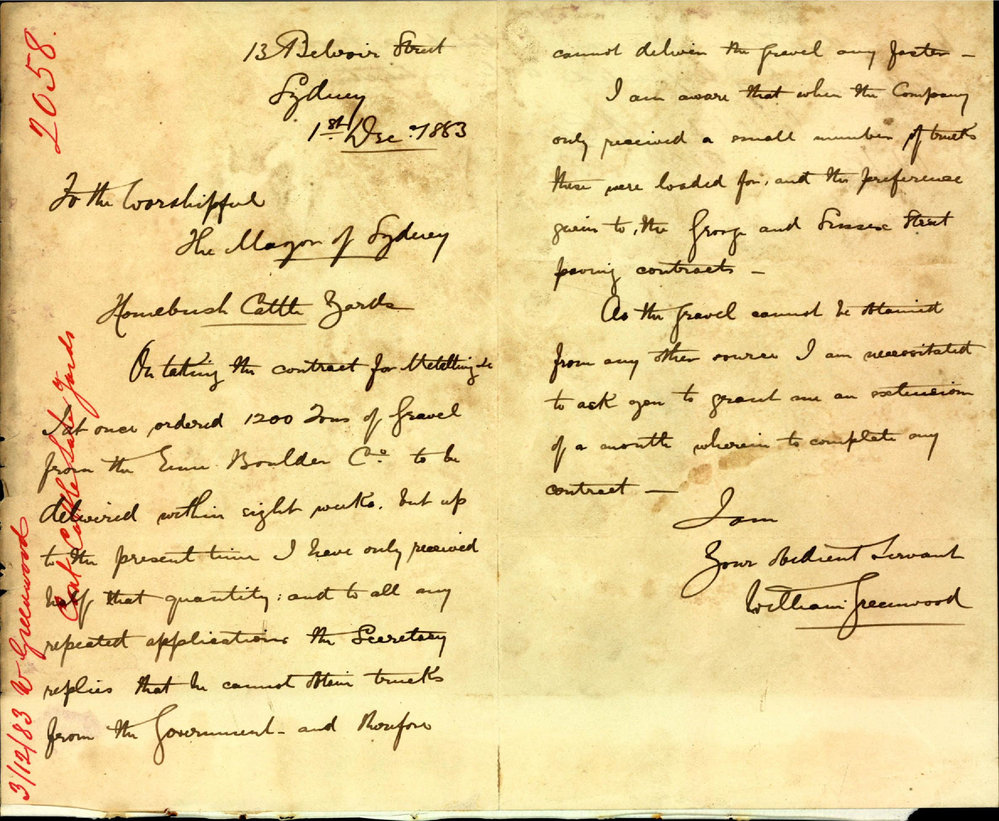 13 Belvoir Street
Sydney
1st Dec. 1883
To the Worshipful
The Mayor of Sydney
Homebush Cattle Yards
On taking the contract for Metelling &c
I at once ordered 1200 Tons of Gravel
from the Emu Boulder Co. to be
delivired within eight weeks. but up
to the present time I have only received
half that quantity: and to all my
repeated applications the Secretary
replies that he cannot obtain trucks
from the Government – and therefore
cannot deliver the gravel any faster –
I am aware that when the Company
only received a small number of trucks
these were loaded for, and the preference
given to, the George and Sussex Street
paving contracts –
As the gravel cannot be obtained
from any other source I am necessitated
to ask you to grant me an extension
of a month wherein to complete my
contract –
I am
Your obedient Servant
William Greenwood
2058.
3/12/83 W Greenwood
Cattle Sale Yards